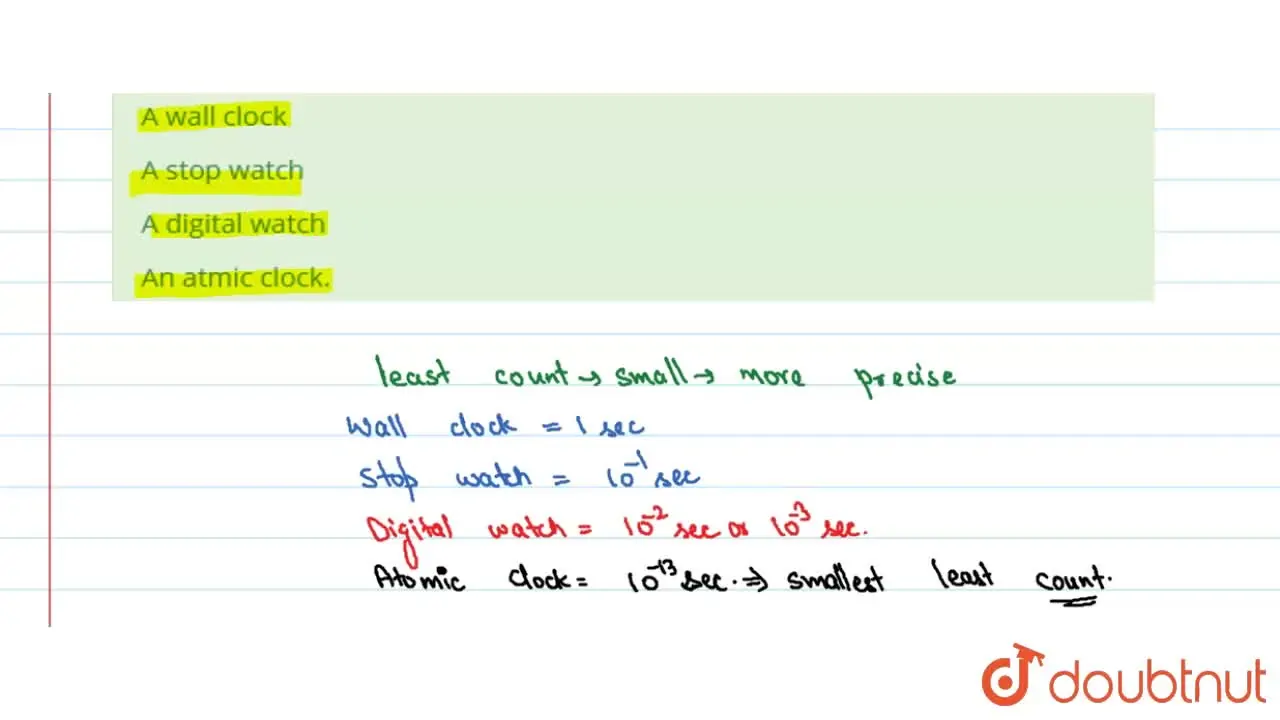 A wall clock
A stop watch
A digital watch
An atmic clock.
least count → small → more precise
Wall clock = 1 sec
Stop watch = 10⁻¹ sec
Digital watch = 10⁻² sec or 10⁻³ sec.
Atomic clock = 10⁻¹³ sec. ⇒ smallest least count.
doubtnut